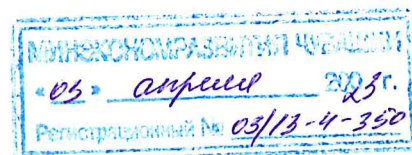 МИНЭКОНОМРАЗВИТИЯ ЧУВАШИИ
«03» апреля 2023 г.
Регистрационный № 03/13-4-350